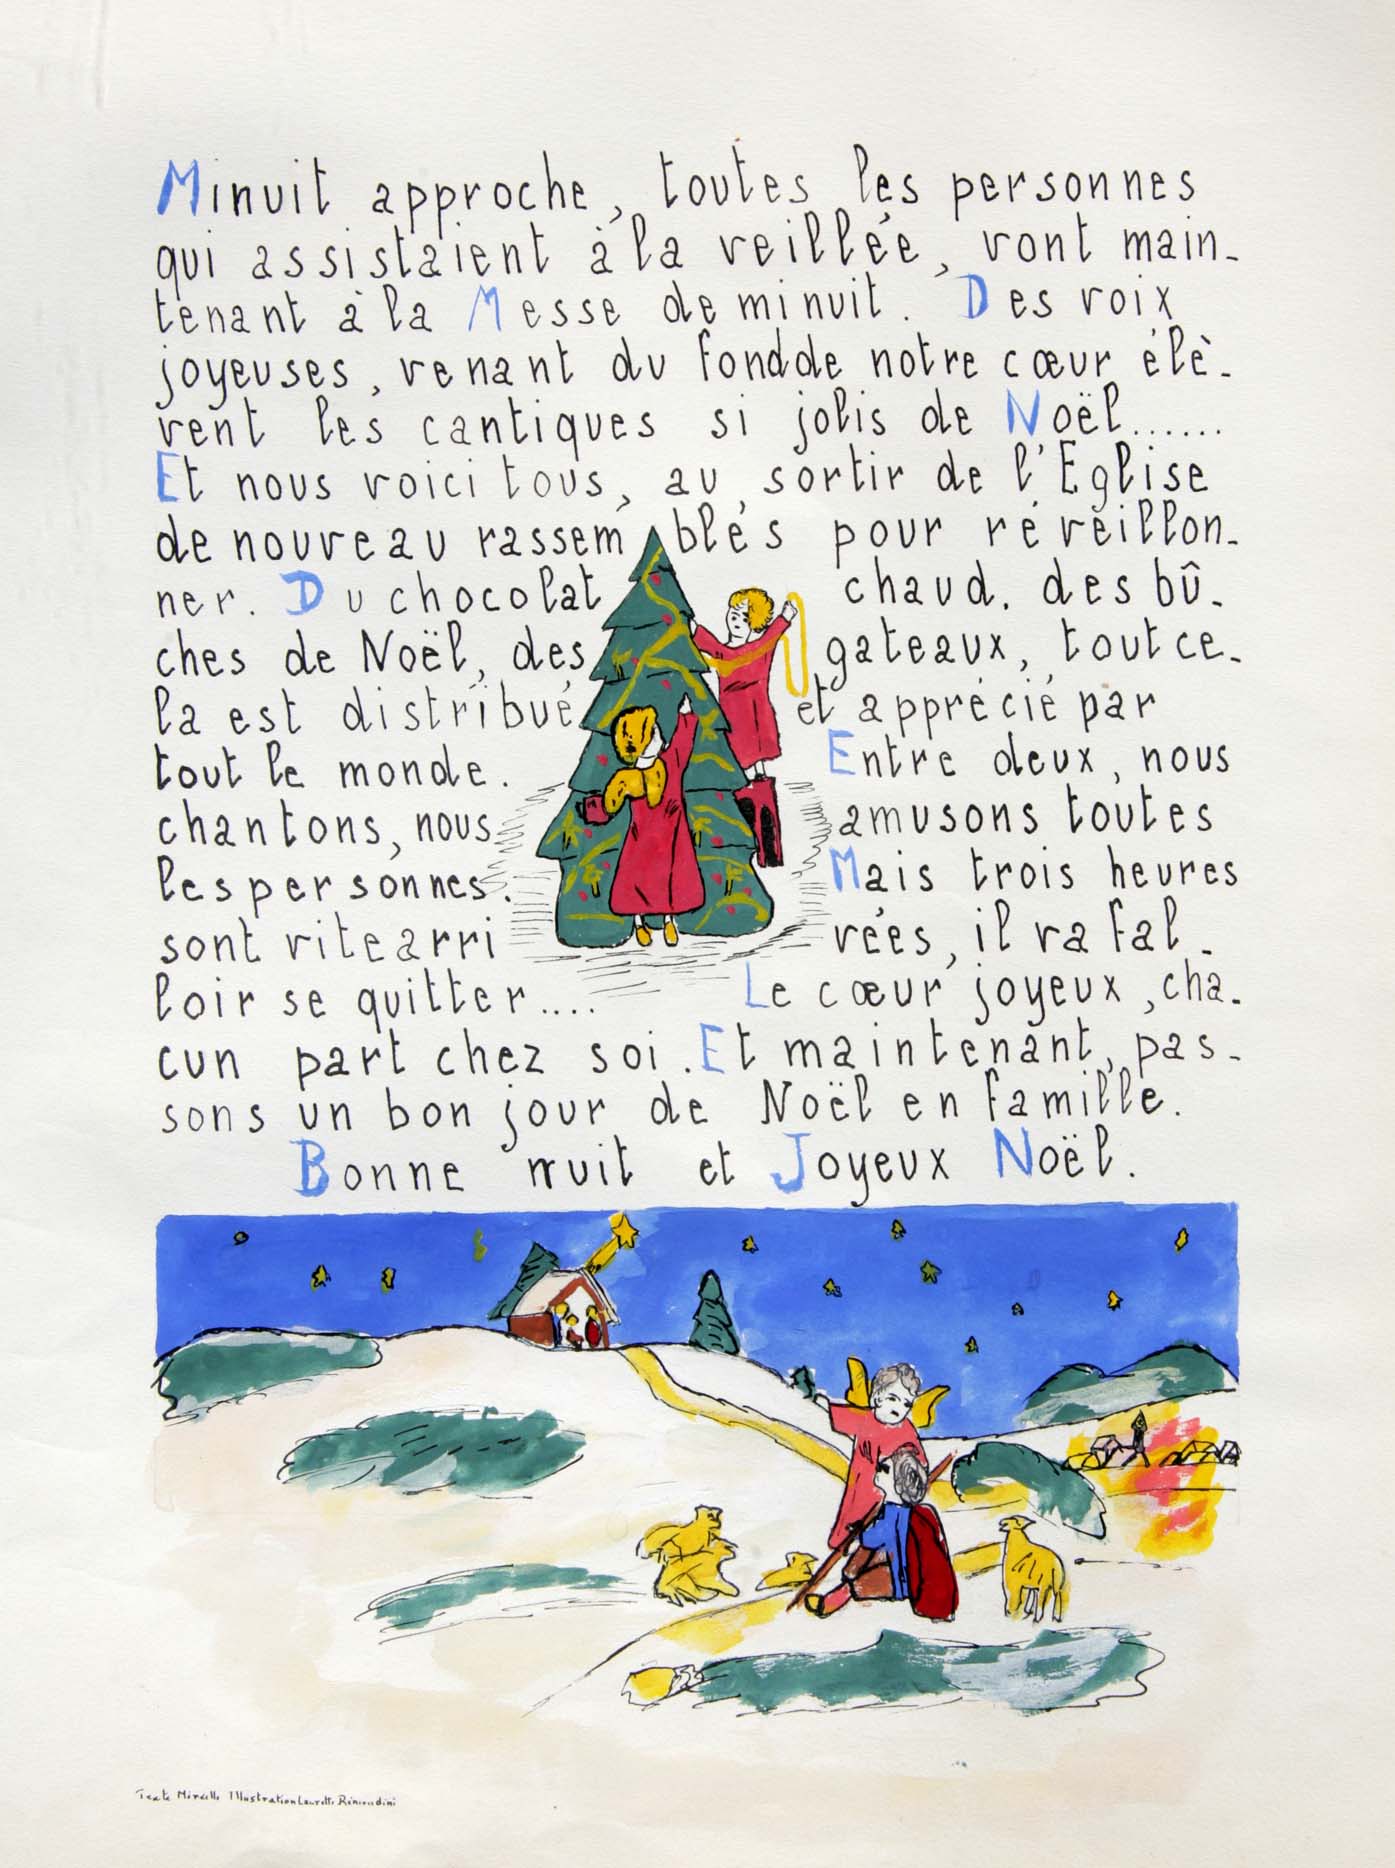 Minuit approche, toutes les personnes
qui assistaient à la veillée, vont main-
tenant à la Messe de minuit. Des voix
joyeuses, venant du fond de notre cœur élè-
vent les cantiques si jolis de Noël......
Et nous voici tous, au sortir de l'Eglise
de nouveau rassemblés pour réveillon-
ner. Du chocolat chaud, des bû-
ches de Noël, des gateaux, tout ce-
la est distribué et apprécié par
tout le monde. Entre deux, nous
chantons, nous amusons toutes
les personnes. Mais trois heures
sont vite arrivées, il va fal-
loir se quitter.... Le cœur joyeux, cha-
cun part chez soi. Et maintenant, pas-
sons un bon jour de Noël en famille.
Bonne nuit et Joyeux Noël.
Texte Mireille Illustration Laurette